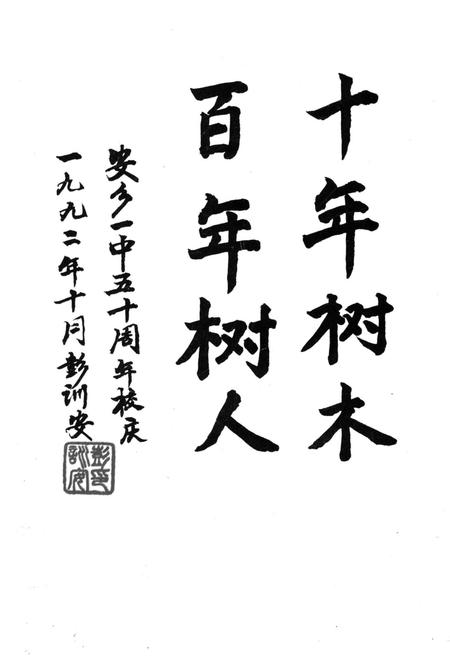 十年树木
百年树人
安乡一中五十周年校庆
一九九二年十月彭训安
彭训安印